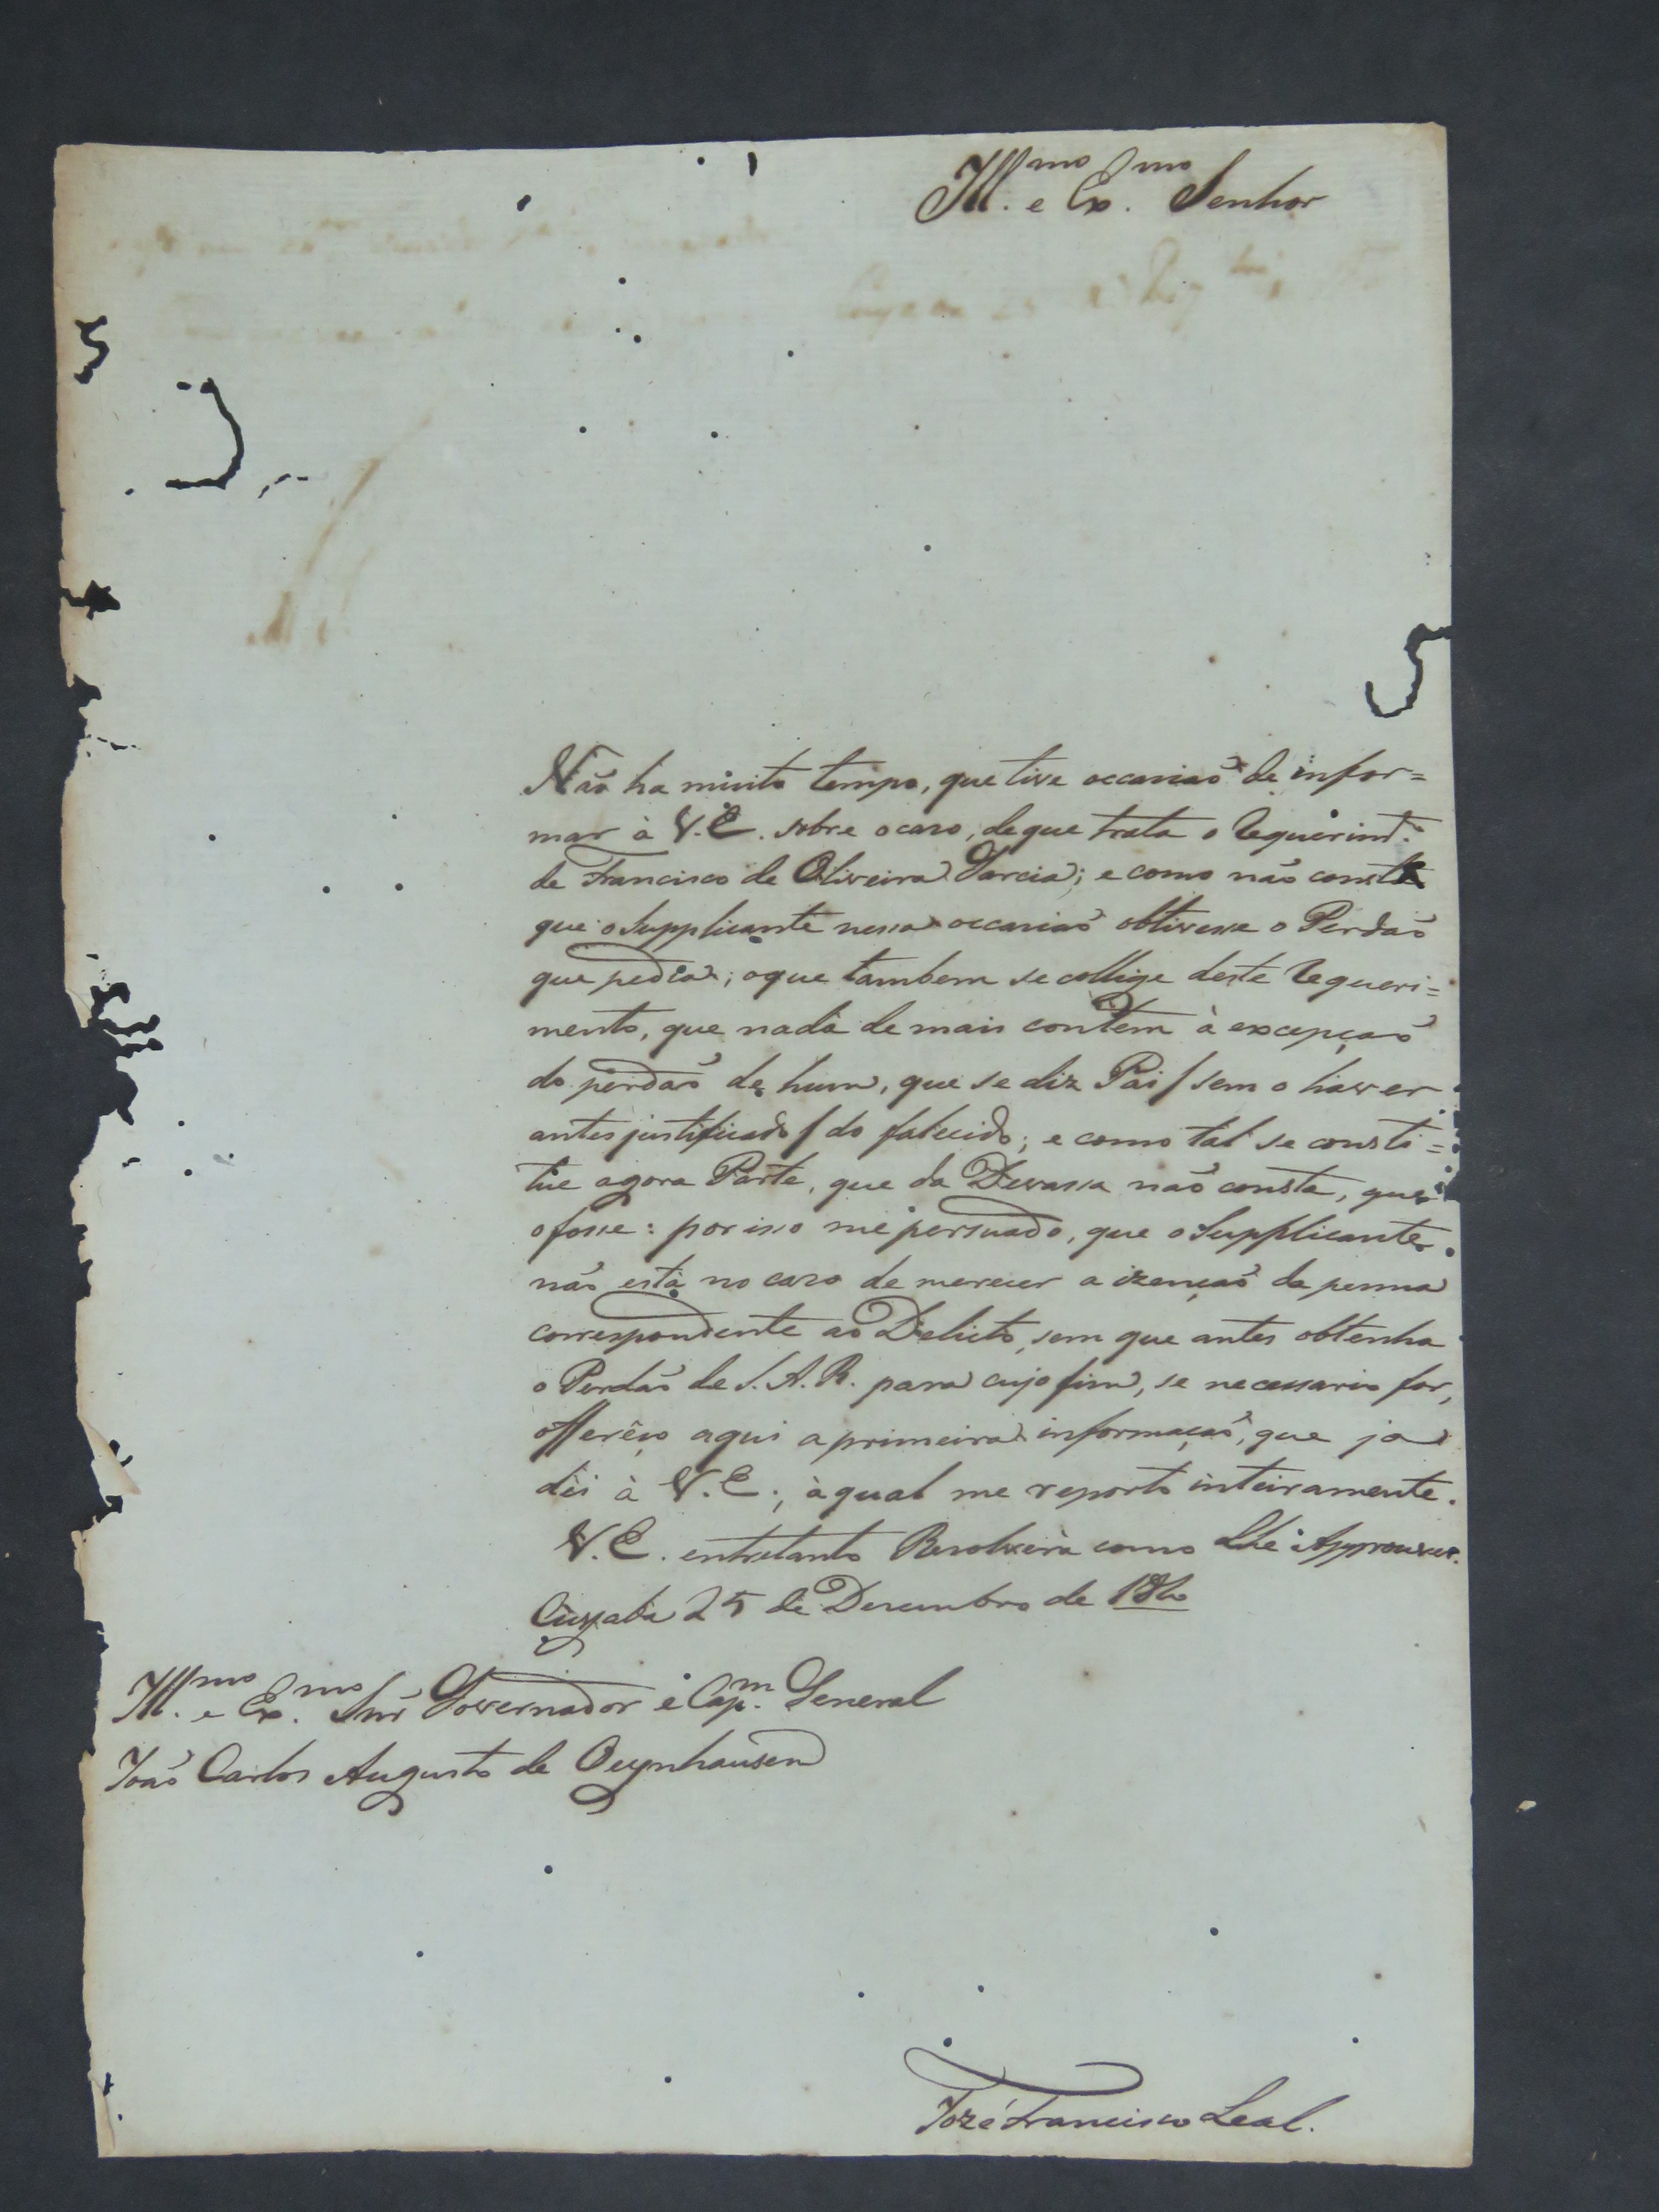 Ill.mo e Ex.mo Senhor
Não ha muito tempo, que tive occasiaõ de infor=
mar à V.E. sobre o caso, de que trata o Requerimt.o
de Francisco de Oliveira Garcia; e como não consta
que o Supplicante nessa occasiaõ obtivesse o Perdaõ
que pedia; o que tambem se collige deste Requeri=
mento, que nada de mais contêm à excepçaõ
do perdaõ de hum, que se diz Pai / sem o haver
antes justificado / do falecido; e como tal se consti=
tue agora Parte, que da Devassa naõ consta, que
o fosse: por isso me persuado, que o Supplicante
não está no caso de merecer a izençaõ da penna
correspondente ao Delicto, sem que antes obtenha
o Perdão de S.A.R. para cujo fim, se necessario for,
offerêço aqui a primeira informaçaõ, que ja
dei à V.E.; à qual me reporto inteiramente.
V.E. entretanto Resolverà como Lhe Approuver.
Cuyabá 25 de Dezembro de
Ill.mo e Ex.mo Snr Governador e Cap.m General
João Carlos Augusto de Oeynhausen
Jozé Francisco Leal.